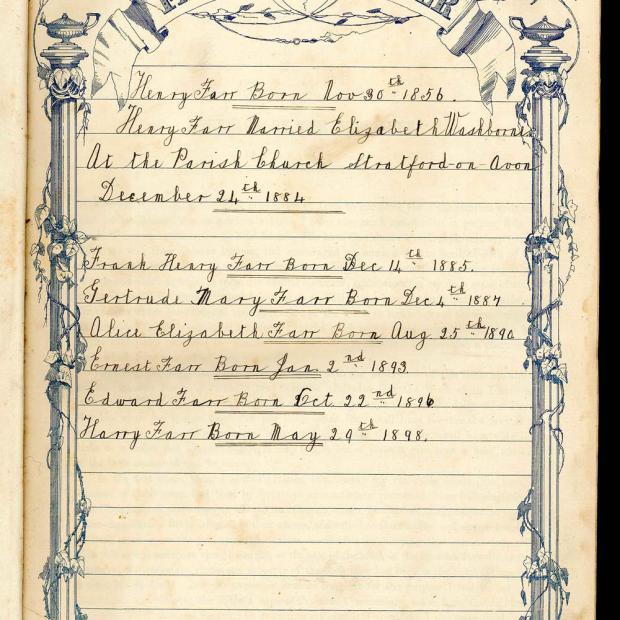 Henry Farr Born Nov 30th 1856.
Henry Farr Married Elizabeth Washborne
At the Parish Church Stratford-on-Avon
December 24th 1884
Frank Henry Farr Born Dec 14th 1885.
Gertrude Mary Farr Born Dec 4th 1887
Alice Elizabeth Farr Born Aug 25th 1890
Ernest Farr Born Jan 2nd 1893.
Edward Farr Born Oct 22nd 1896
Harry Farr Born May 29th 1898.